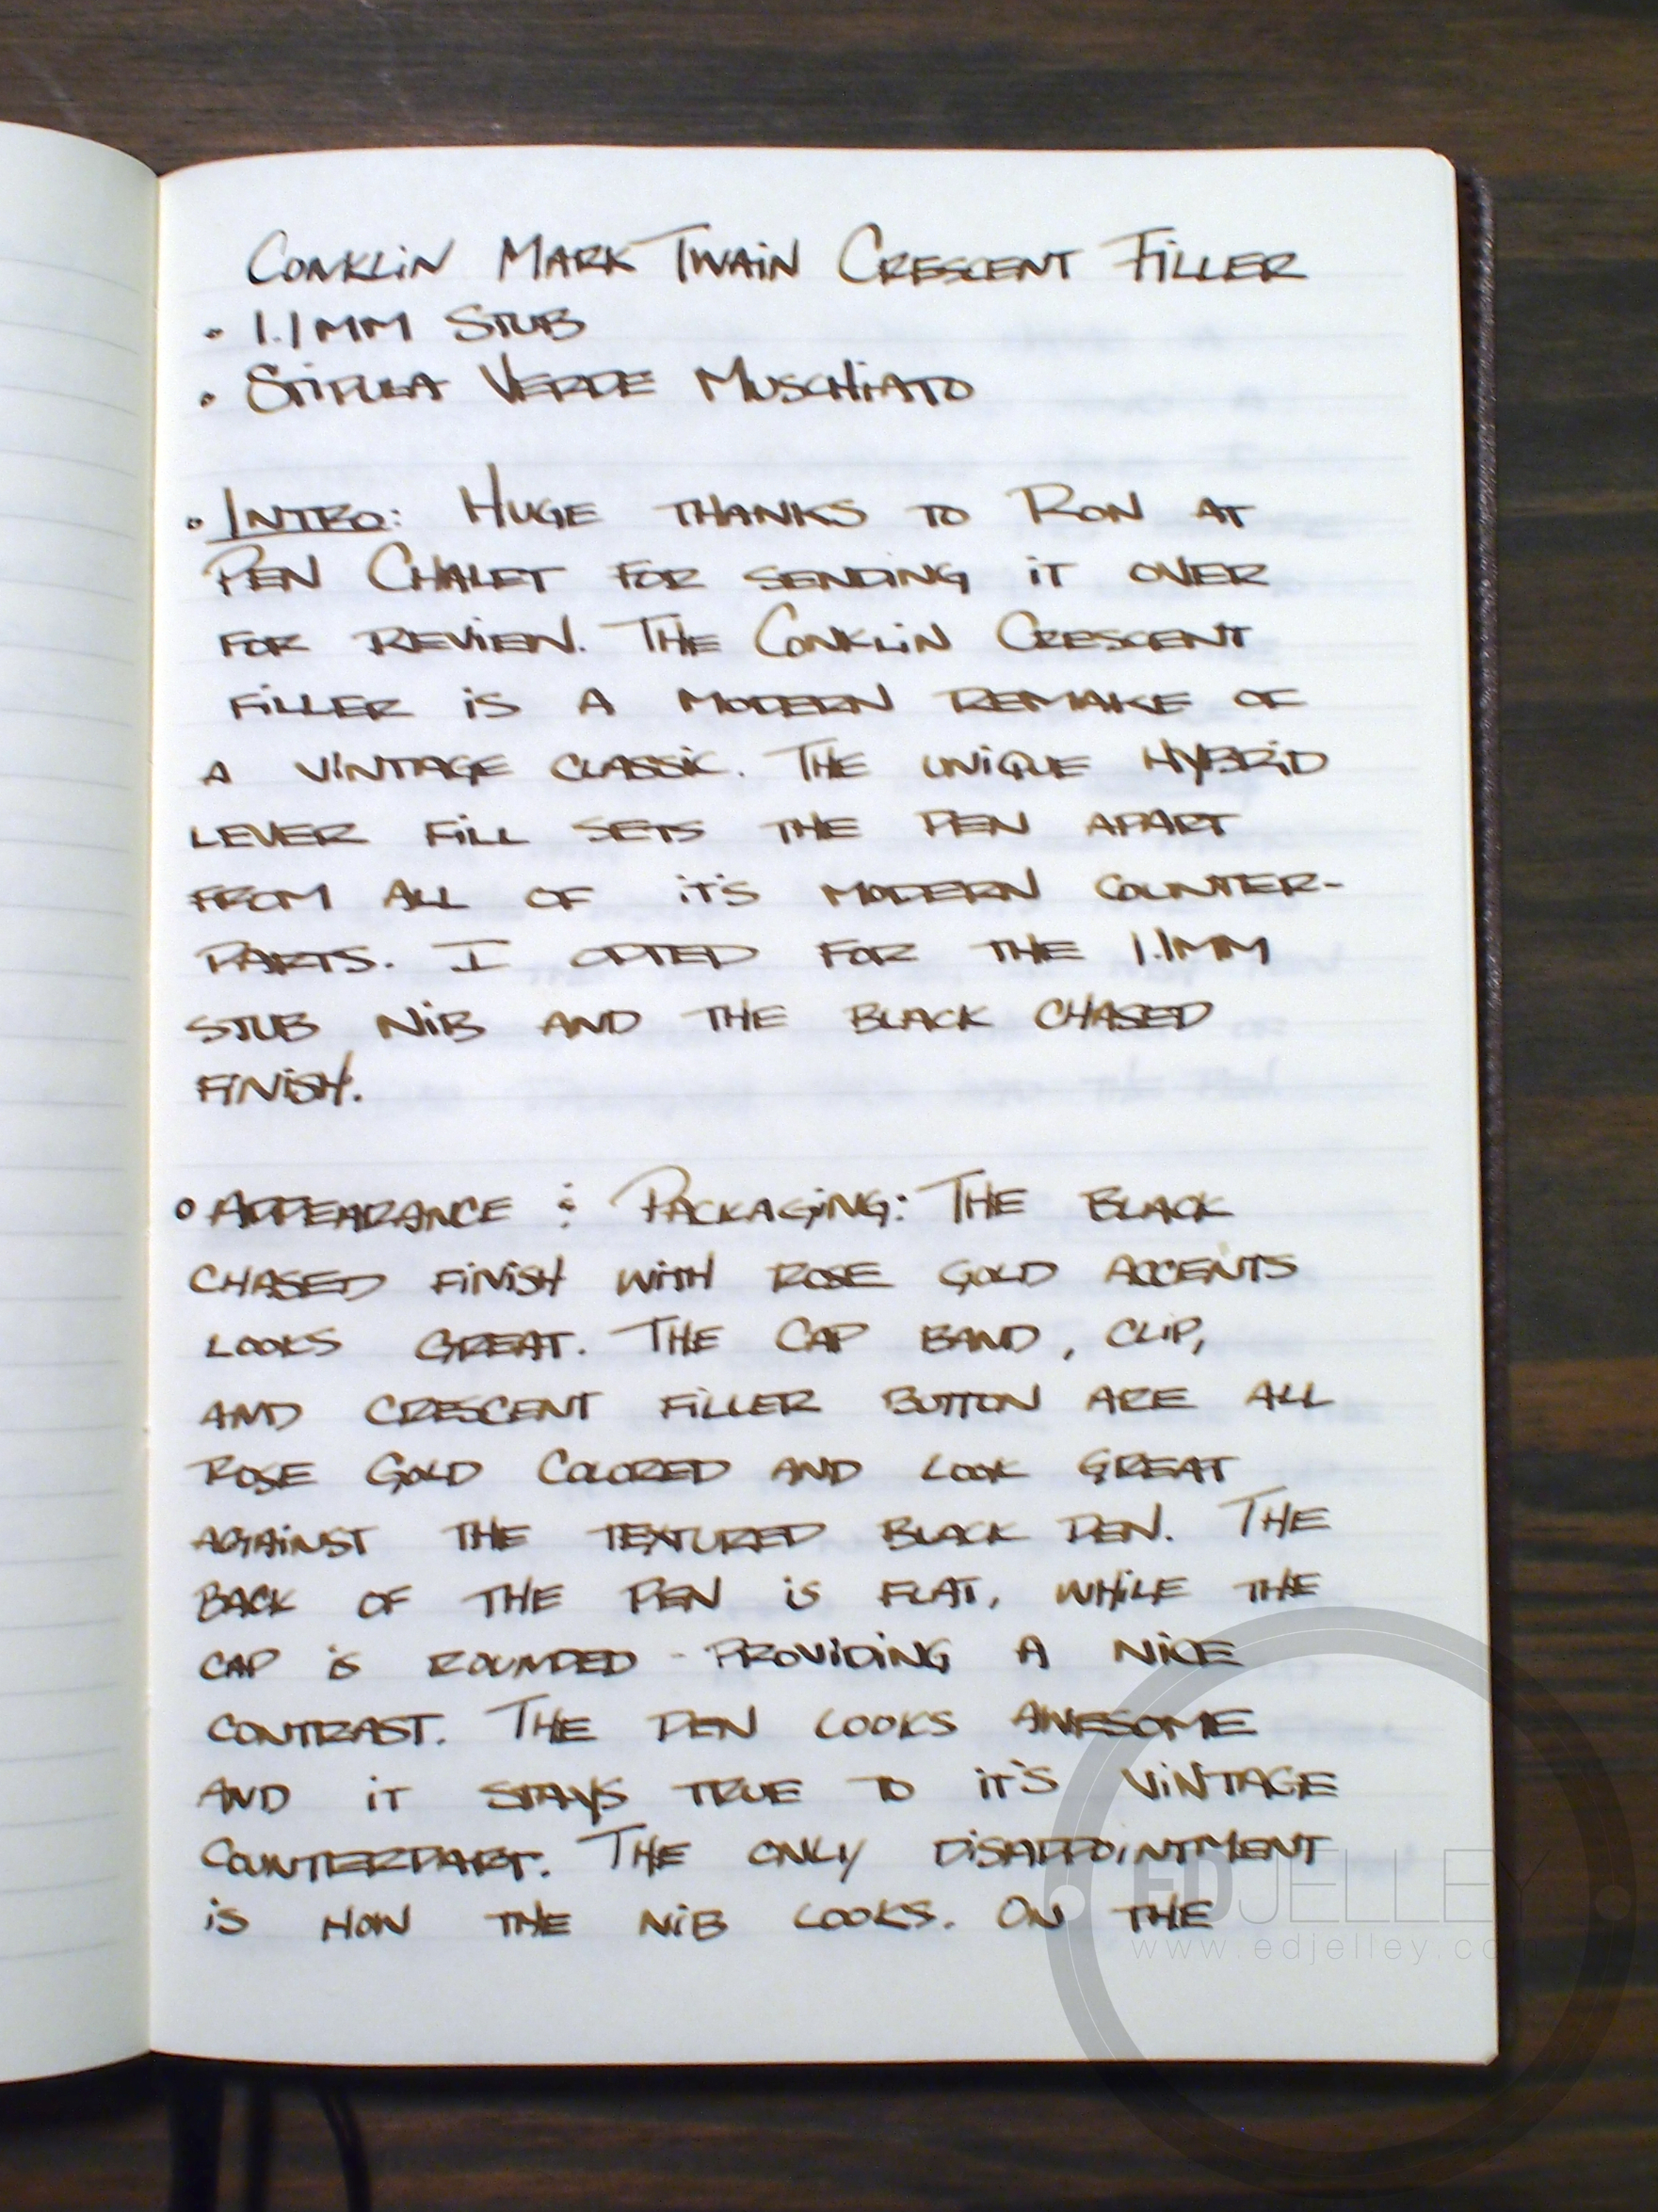 Conklin Mark Twain Crescent Filler
• 1.1mm Stub
• Stipula Verde Muschiato
• Intro: Huge thanks to Ron at
Pen Chalet for sending it over
for review. The Conklin Crescent
filler is a modern remake of
a vintage classic. The unique hybrid
lever fill sets the pen apart
from all of it's modern counter-
parts. I opted for the 1.1mm
stub nib and the black chased
finish.
• Appearance & Packaging: The black
chased finish with rose gold accents
looks great. The cap band, clip,
and crescent filler button are all
rose gold colored and look great
against the textured black pen. The
back of the pen is flat, while the
cap is rounded - providing a nice
contrast. The pen looks awesome
and it stays true to it's vintage
counterpart. The only disappointment
is how the nib looks. On the
EDJELLEY
www.edjelley.co